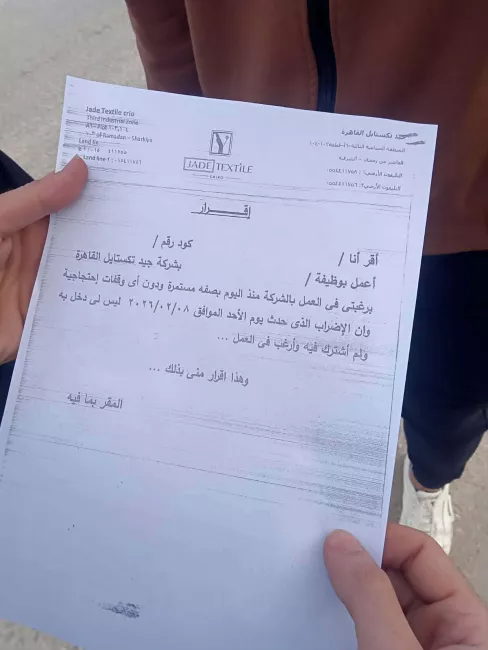 Jade Textile
Third industrial zone
10th of Ramadan - Sharkiya
Land line
Land line
جيد تكستايل القاهرة
المنطقة الصناعية الثالثة
العاشر من رمضان - الشرقية
التليفون الأرضى
التليفون الأرضى
Y
JADE TEXTILE
CAIRO
إقرار
أقر أنا / كود رقم /
أعمل بوظيفة / بشركة جيد تكستايل القاهرة
برغبتى فى العمل بالشركة منذ اليوم بصفه مستمرة ودون أى وقفات إحتجاجية
وان الإضراب الذى حدث يوم الأحد الموافق ٢٠٢٦/٠٢/٠٨ ليس لى دخل به
ولم أشترك فيه وأرغب فى العمل ...
وهذا اقرار منى بذلك ...
المقر بما فيه